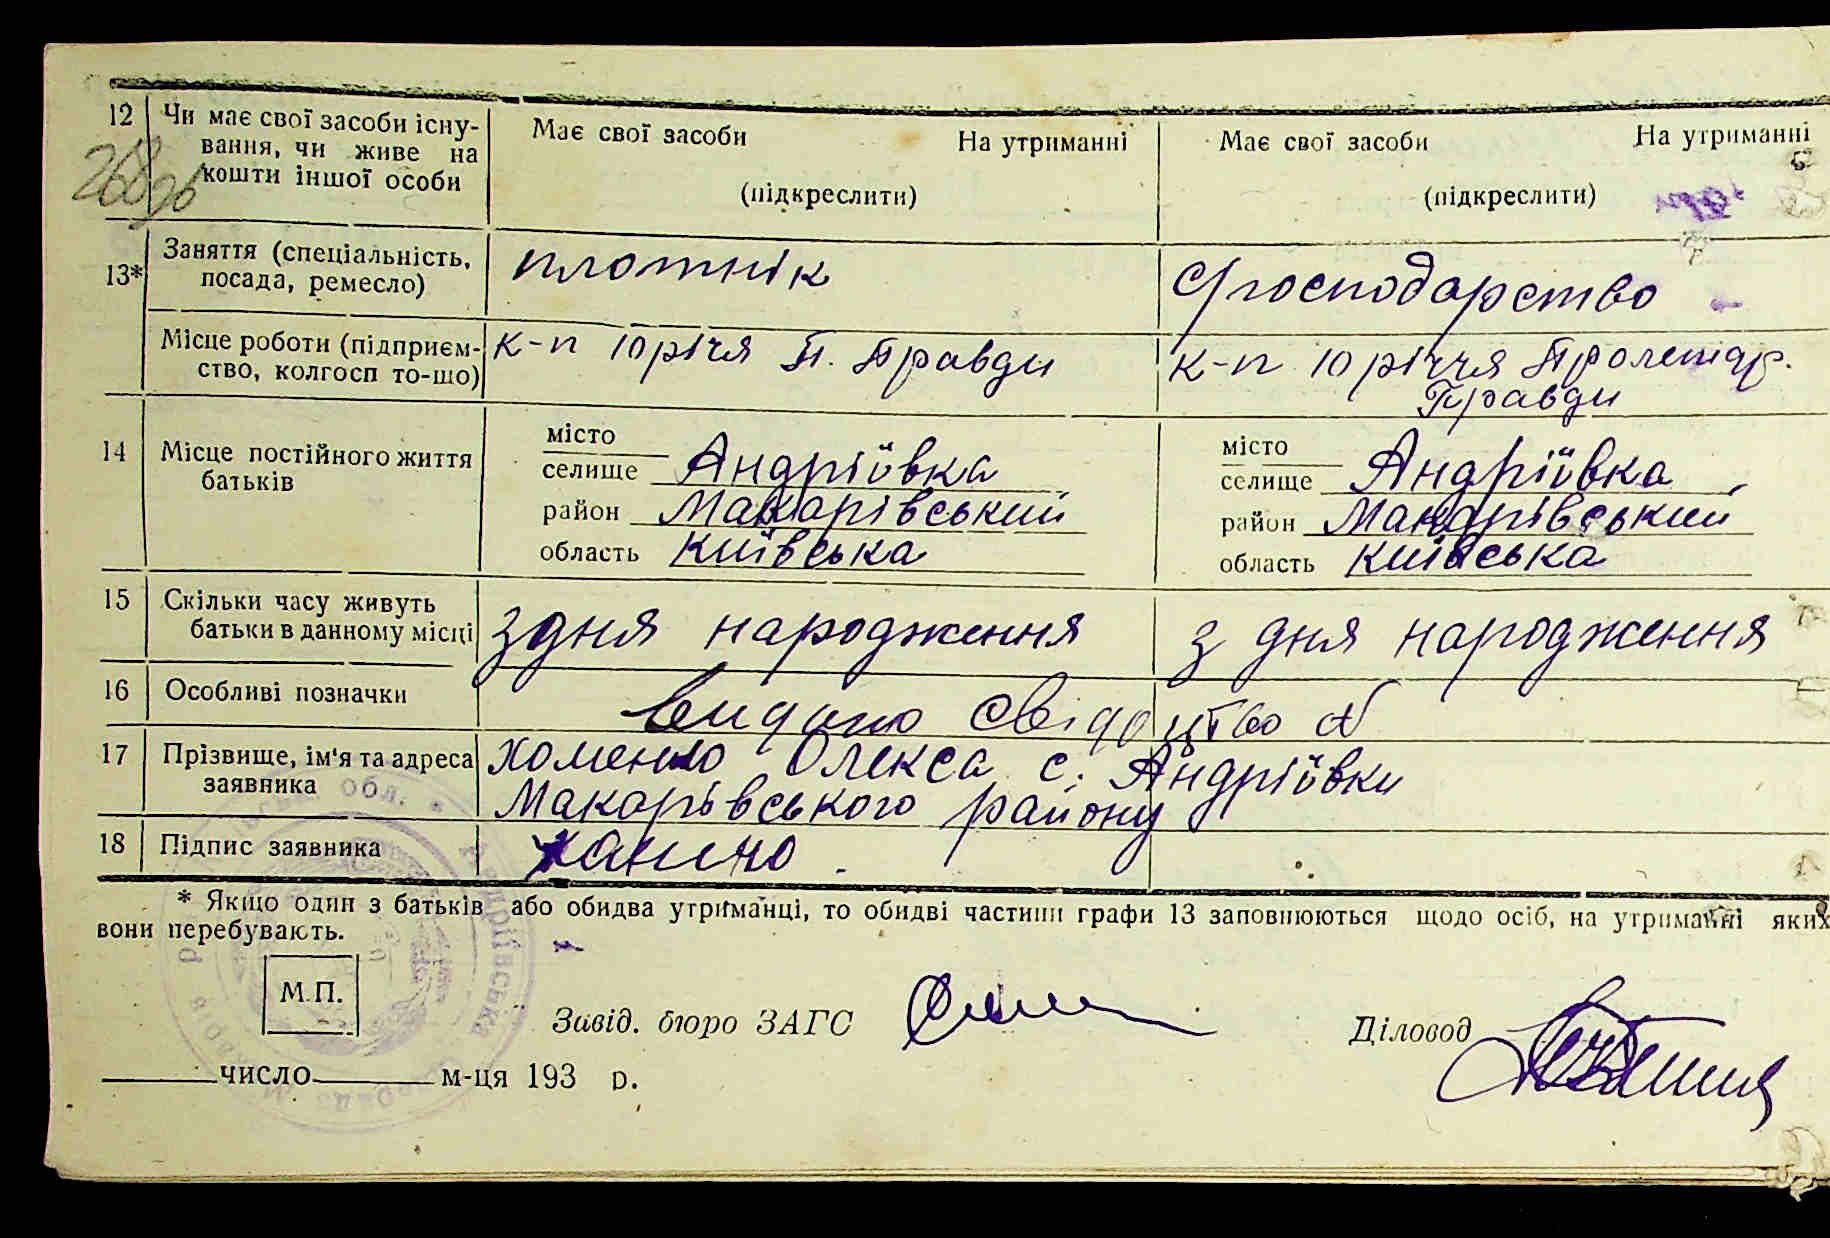 12 Чи має свої засоби існу-
вання, чи живе на
кошти іншої особи
Має свої засоби На утриманні
(підкреслити)
Має свої засоби На утриманні
(підкреслити)
268
13* Заняття (спеціальність,
посада, ремесло)
плотнік
господарство
Місце роботи (підприєм-
ство, колгосп то-що)
к-п 10 річя П. Правди
к-п 10 річчя Пролетар.
Правди
14 Місце постійного життя
батьків
місто
селище Андріївка
район Макарівський
область Київська
місто
селище Андріївка
район Макарівський
область Київська
15 Скільки часу живуть
батьки в данному місці
з дня народження
з дня народження
16 Особливі позначки
видано свідоцтво
17 Прізвище, ім'я та адреса
заявника
Хоменко Олекса с. Андріївки
Макарівського району
18 Підпис заявника
* Якщо один з батьків або обидва утриманці, то обидві частини графи 13 заповнюються щодо осіб, на утриманні яких
вони перебувають.
М.П.
Завід. бюро ЗАГС
Діловод
число м-ця 193 р.